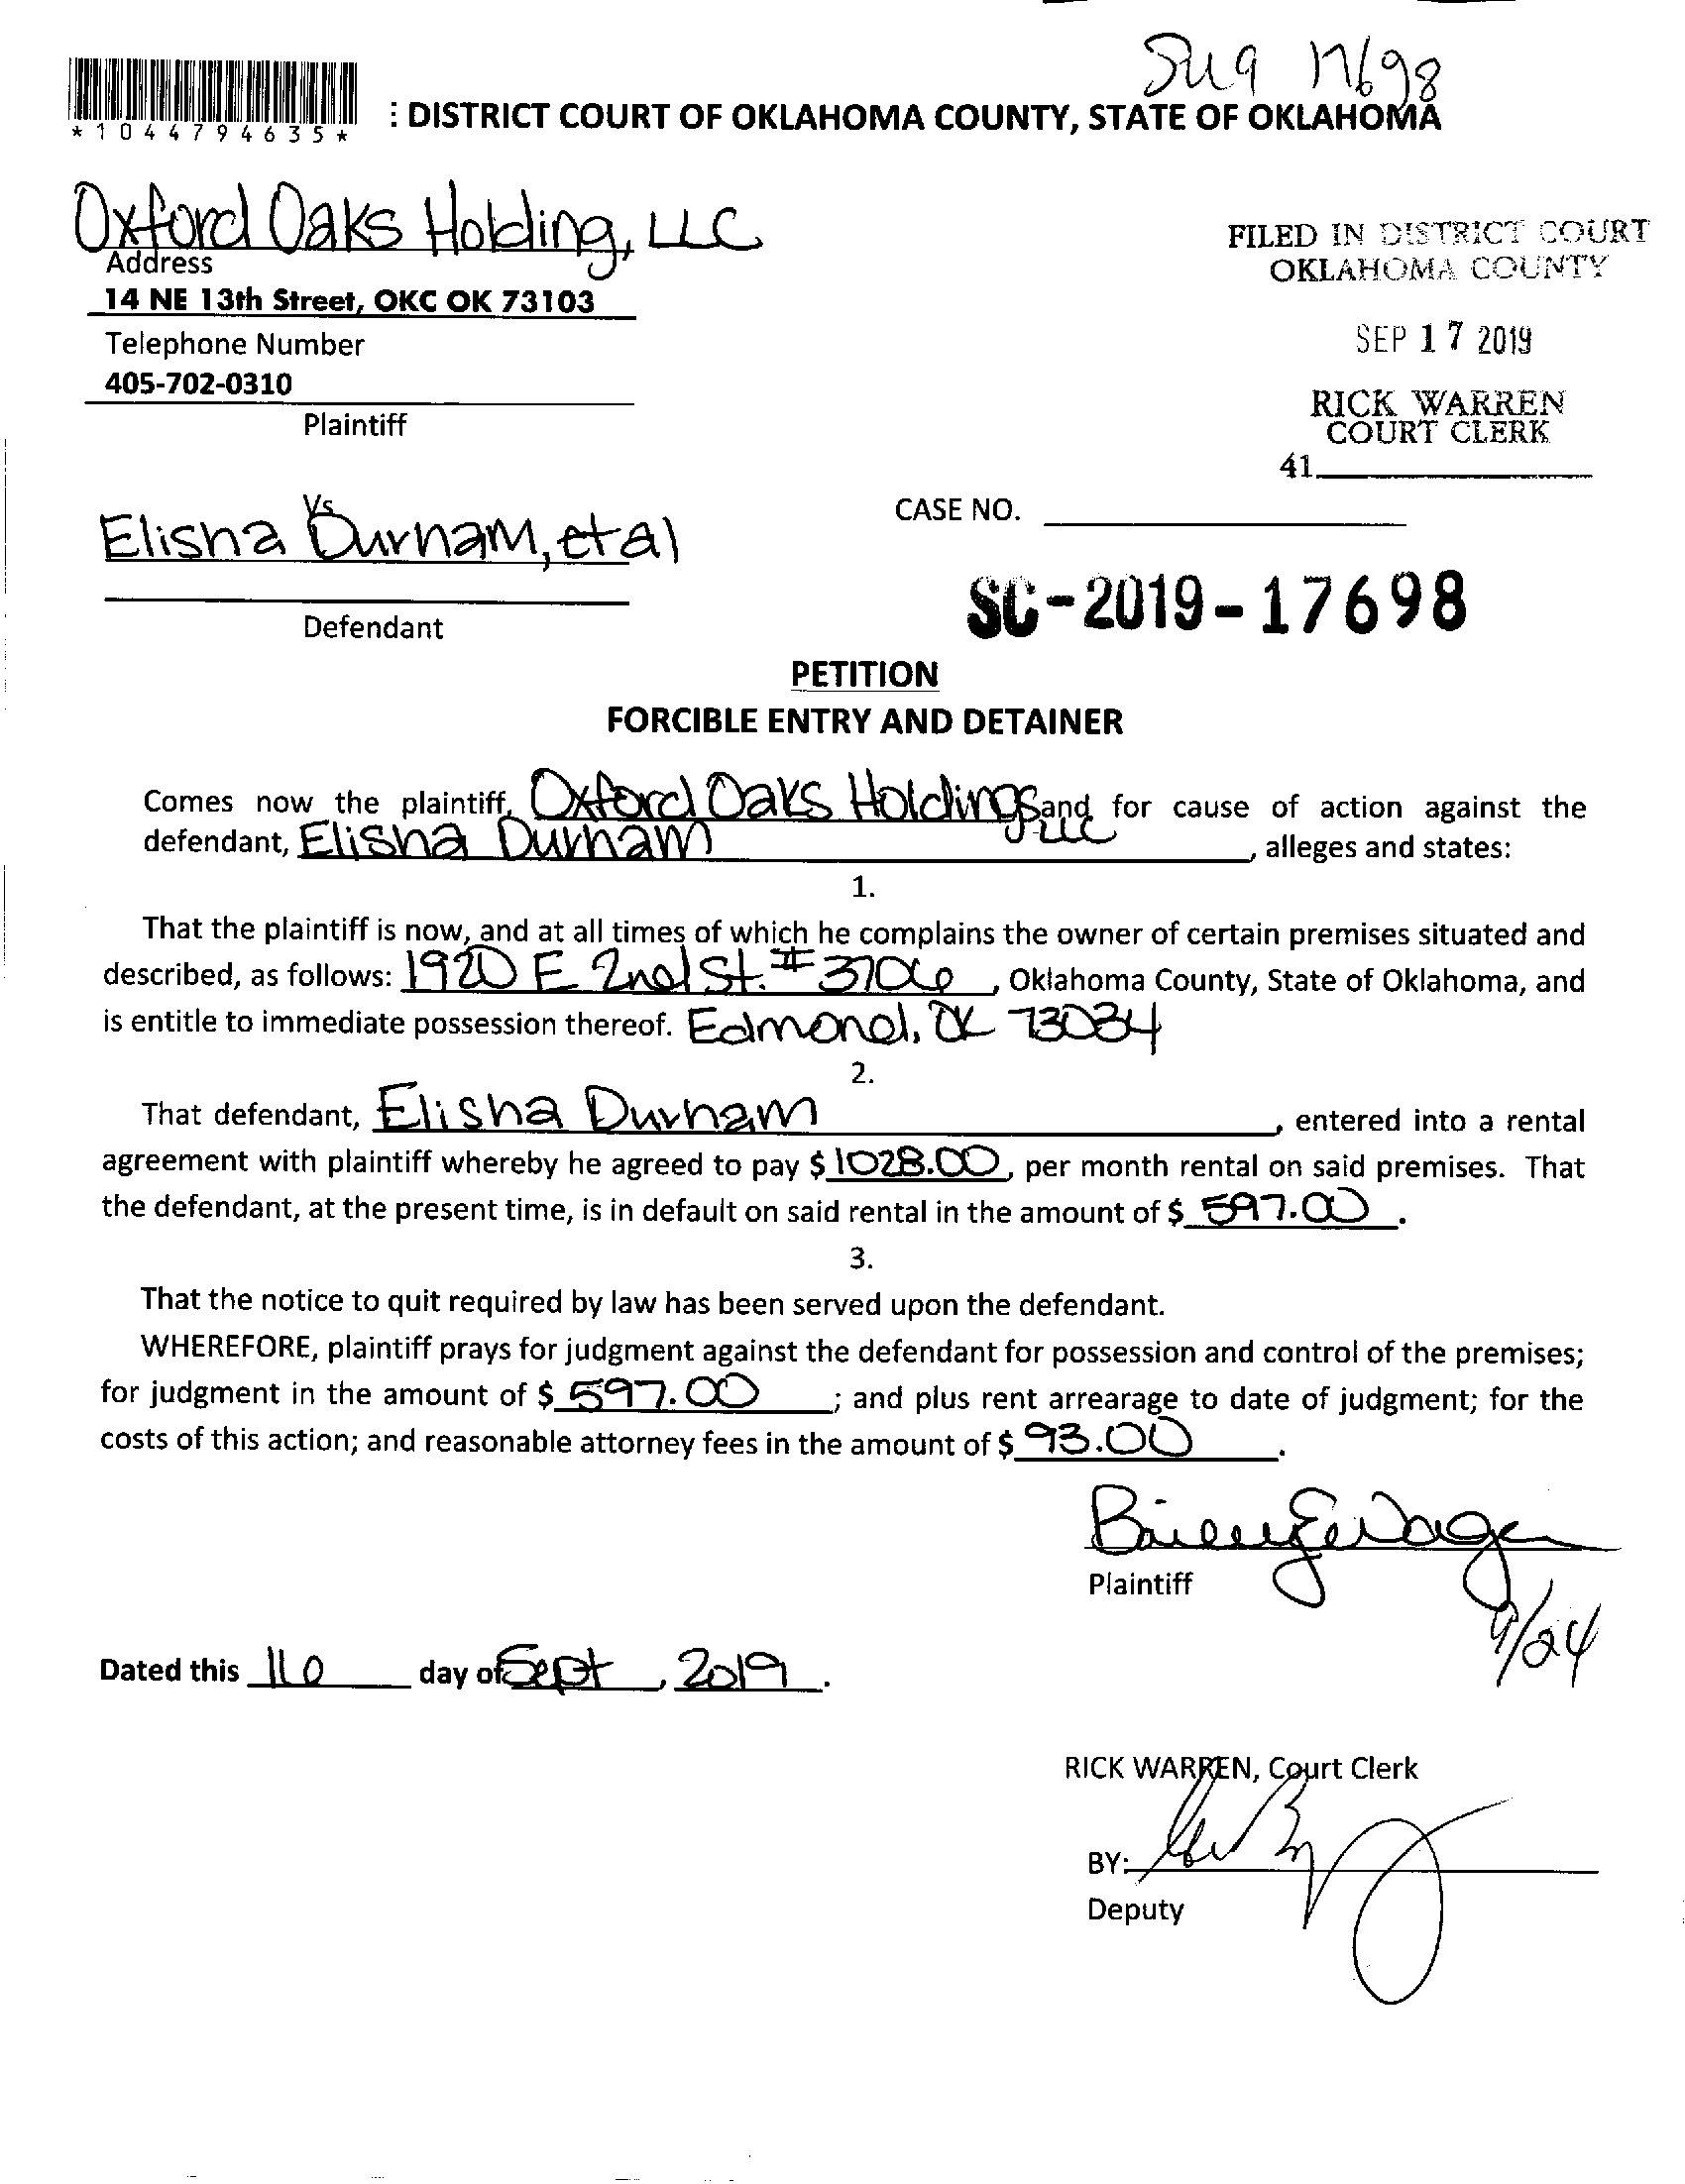 Su9 17698
*1044794635*
: DISTRICT COURT OF OKLAHOMA COUNTY, STATE OF OKLAHOMA
Oxford Oaks Holding, LLC
Address
14 NE 13th Street, OKC OK 73103
Telephone Number
405-702-0310
Plaintiff
FILED IN DISTRICT COURT
OKLAHOMA COUNTY
SEP 17 2019
RICK WARREN
COURT CLERK
41
Vs
Elisha Durham, et al
Defendant
CASE NO.
SC-2019-17698
PETITION
FORCIBLE ENTRY AND DETAINER
Comes now the plaintiff, Oxford Oaks Holdings LLC and for cause of action against the
defendant, Elisha Durham, alleges and states:
1.
That the plaintiff is now, and at all times of which he complains the owner of certain premises situated and
described, as follows: 1920 E 2nd St. #3706, Oklahoma County, State of Oklahoma, and
is entitle to immediate possession thereof. Edmond, OK 73034
2.
That defendant, Elisha Durham, entered into a rental
agreement with plaintiff whereby he agreed to pay $ 1028.00, per month rental on said premises. That
the defendant, at the present time, is in default on said rental in the amount of $ 597.00.
3.
That the notice to quit required by law has been served upon the defendant.
WHEREFORE, plaintiff prays for judgment against the defendant for possession and control of the premises;
for judgment in the amount of $ 597.00; and plus rent arrearage to date of judgment; for the
costs of this action; and reasonable attorney fees in the amount of $ 93.00.
Plaintiff
9/24
Dated this 16 day of Sept, 2019.
RICK WARREN, Court Clerk
BY:
Deputy